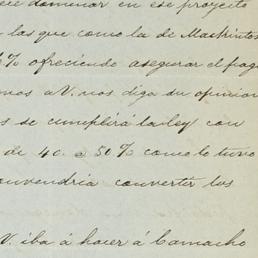 dominar en ese proyecto
las que como la de Mackintos
6% ofreciendo asegurar el pag
a V. nos diga su opinion
se cumplirá la ley con
de 40. a 50% como lo tuvo
convendria convertir los
V. iba á hacer á Camacho